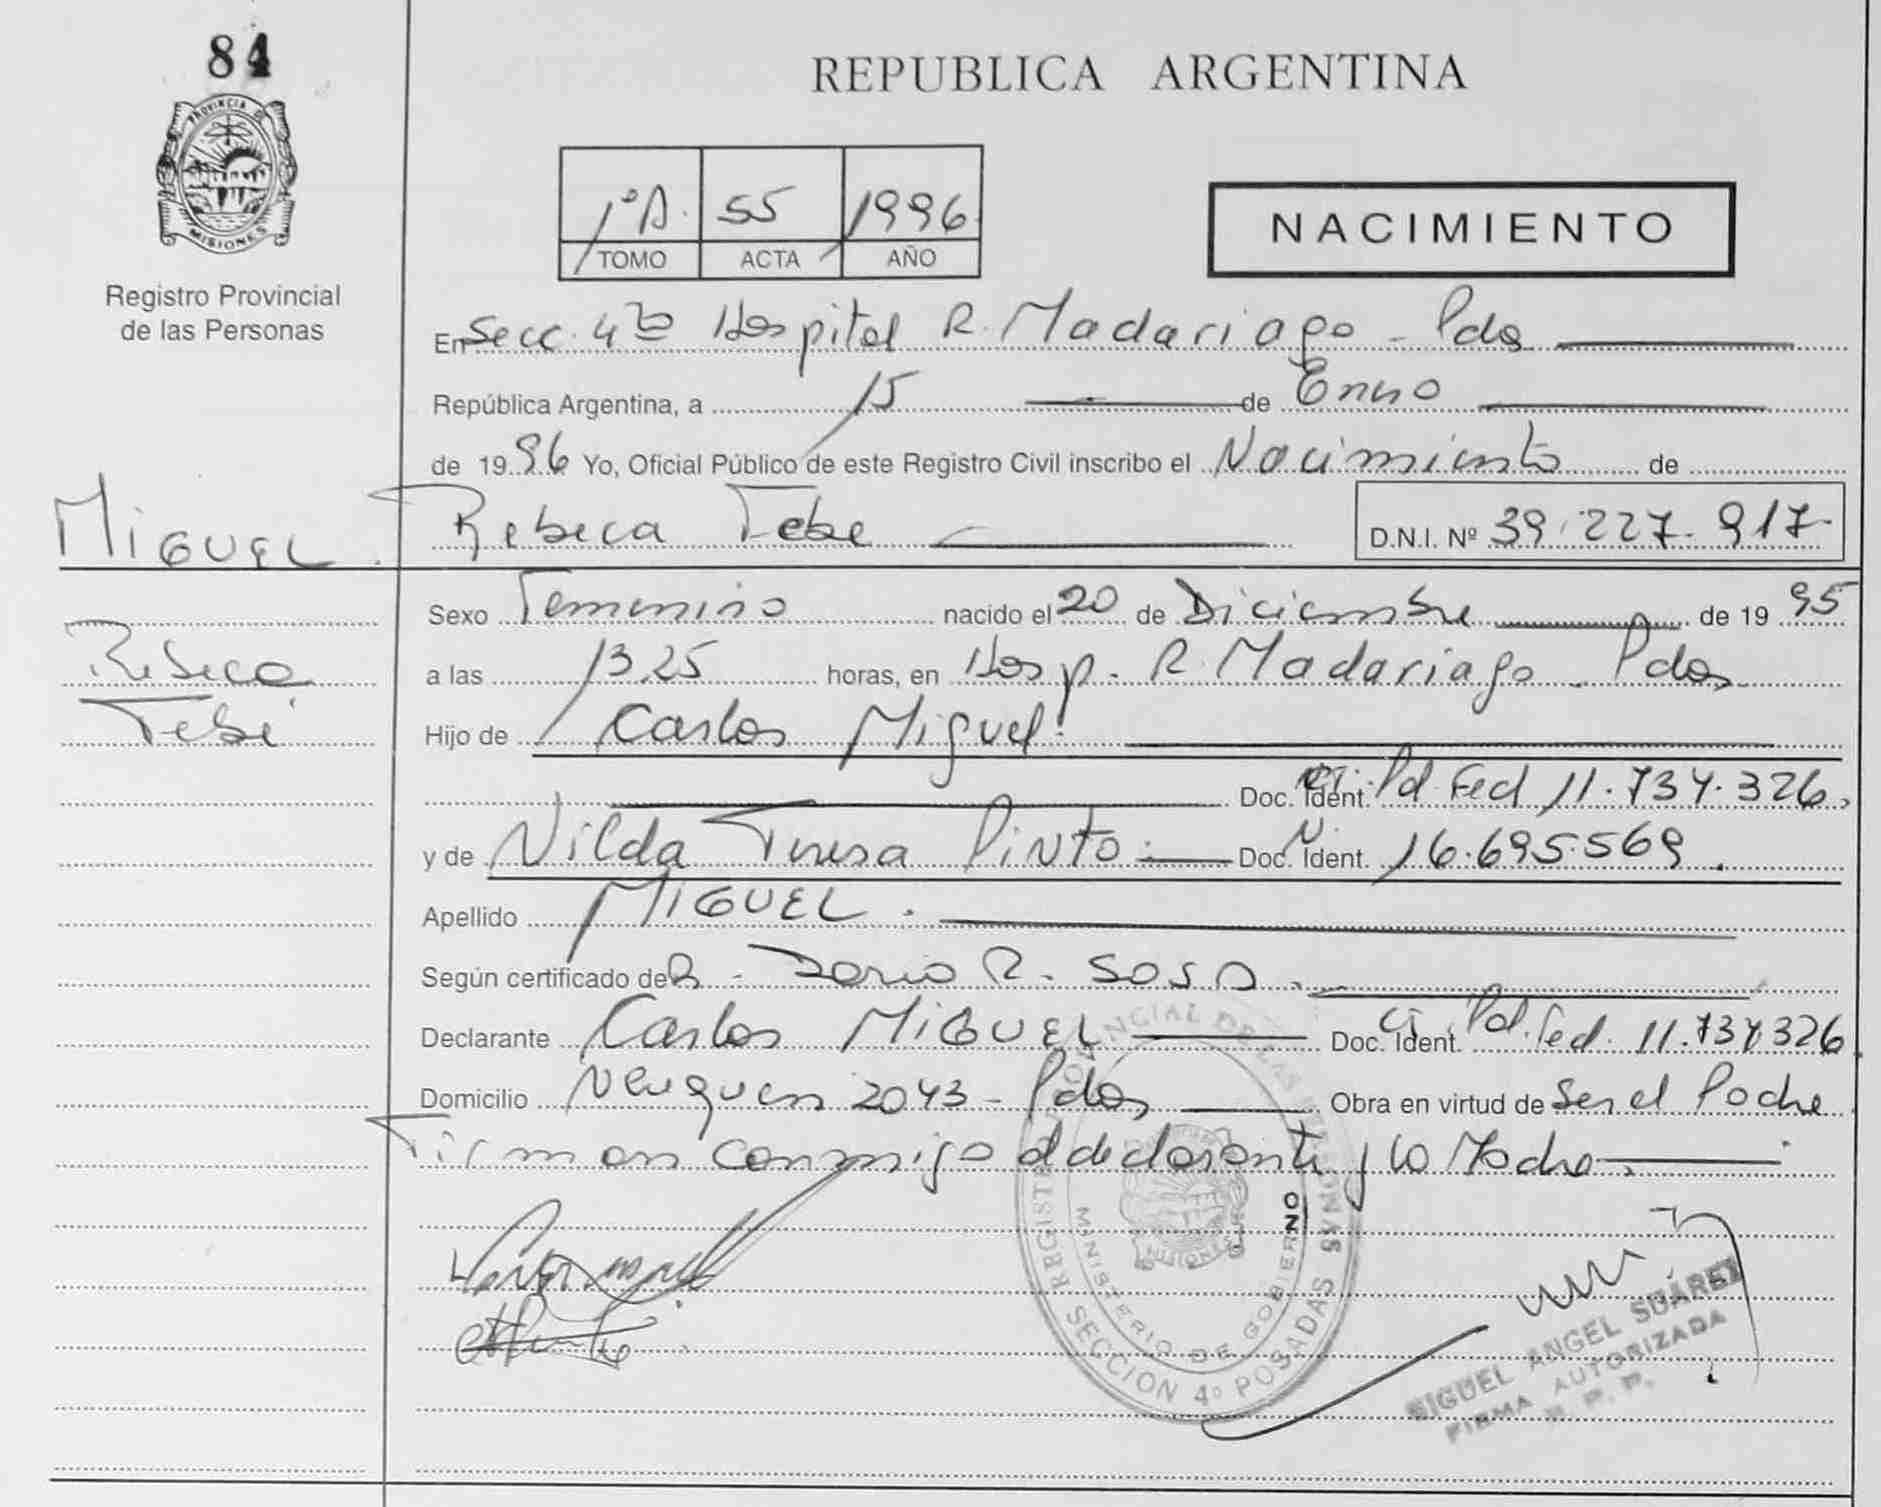 84
REPUBLICA ARGENTINA
PROVINCIA DE
MISIONES
Registro Provincial
de las Personas
1º A. 55 1996
TOMO ACTA AÑO
NACIMIENTO
En Secc. 4ta Hospital R. Madariaga - Pdas
República Argentina, a 15 de Enero
de 1996 Yo, Oficial Público de este Registro Civil inscribo el Nacimiento de
MIGUEL. Rebeca Febe D.N.I. Nº 39.227.917-
Sexo Femenino nacido el 20 de Diciembre de 1995
Rebeca
a las 13,25 horas, en Hosp. R. Madariaga - Pdas
Febe
Hijo de Carlos Miguel
Doc. Ident. CI. Pol. Fed 11.734.326,
y de Nilda Teresa Pinto Doc. Ident. N. 16.695.569.
Apellido MIGUEL.
Según certificado de Dario R. Sosa
Declarante Carlos MIGUEL Doc. Ident. CI. Pol. Fed. 11.734326
Domicilio Neuquen 2043 - Pdas Obra en virtud de Ser el Padre
Firman conmigo el declarante y la Madre.
REGISTRO PROVINCIAL DE LAS PERSONAS
MINISTERIO DE GOBIERNO
MISIONES
SECCION 4º POSADAS
MIGUEL ANGEL SUÁREZ
FIRMA AUTORIZADA
R. P. P.